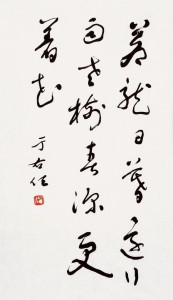 蒼龍日暮還行
雨老樹春深更
著花
于右任